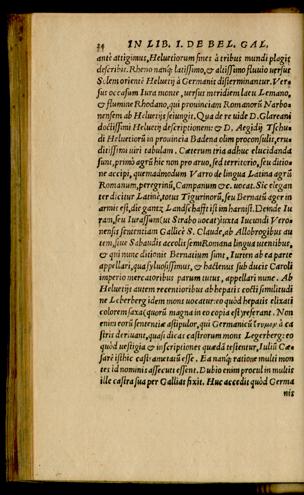 34 IN LIB. I. DE BEL. GAL.
antè attigimus, Heluetiorum fines à tribus mundi plagis
describit. Rheno nanq; latissimo, & altissimo fluuio versus
Solem orientē Heluetij à Germanis disterminantur. Ver-
sus occasum Iura monte, versus meridiem lacu Lemano,
& flumine Rhodano, qui prouinciam Romanorū Narbo-
nensem ab Heluetijs seiungit. Qua de re vide D. Glareani
doctissimi Heluetij descriptionem: & D. Aegidij Tschu-
di Heluetiorū in prouincia Badena olim proconsulis, eru-
ditissimi uiri tabulam. Cæterum tria adhuc elucidanda
sunt, primò agrū hic non pro aruo, sed territorio, seu ditio-
ne accipi, quemadmodum Varro de lingua Latina agrū
Romanum, peregrinū, Campanum &c. uocat. Sic elegan
ter dicitur Latinè, totus Tigurinorū, seu Bernatū ager in
armis est, die gantz Landschafft ist im harnisch. Deinde Iu
ram, seu Iurassum (ut Strabo uocat) iuxta Iucundi Vero-
nensis sententiam Gallicè S. Claude, ab Allobrogibus au
tem, siue Sabaudis accolis semi Romana lingua utentibus,
& qui nunc ditionis Bernatium sunt, Iurten ab ea parte
appellari, qua syluosissimus, & hactenus sub ducis Caroli
imperio mercatoribus parum tutus, appellari nunc. Ab
Heluetijs autem recentioribus ab hepatis cocti similitudi
ne Leberberg idem mons uocatur: eo quòd hepatis elixati
colorem saxa (quorū magna in eo copia est) referant. Non
enim eorū sententiæ astipulor, qui Germanicū à ca
stris deriuant, quasi dicas castrorum mons Legerberg: eo
quòd uestigia & inscriptiones quædā testentur, Iuliū Cæ-
sarē isthic castrametatū esse. Ea nanq; ratione multi mon
tes id nominis assecuti essent. Dubio enim procul in multis
ille castra sua per Gallias fixit. Huc accedit quòd Germa
nis